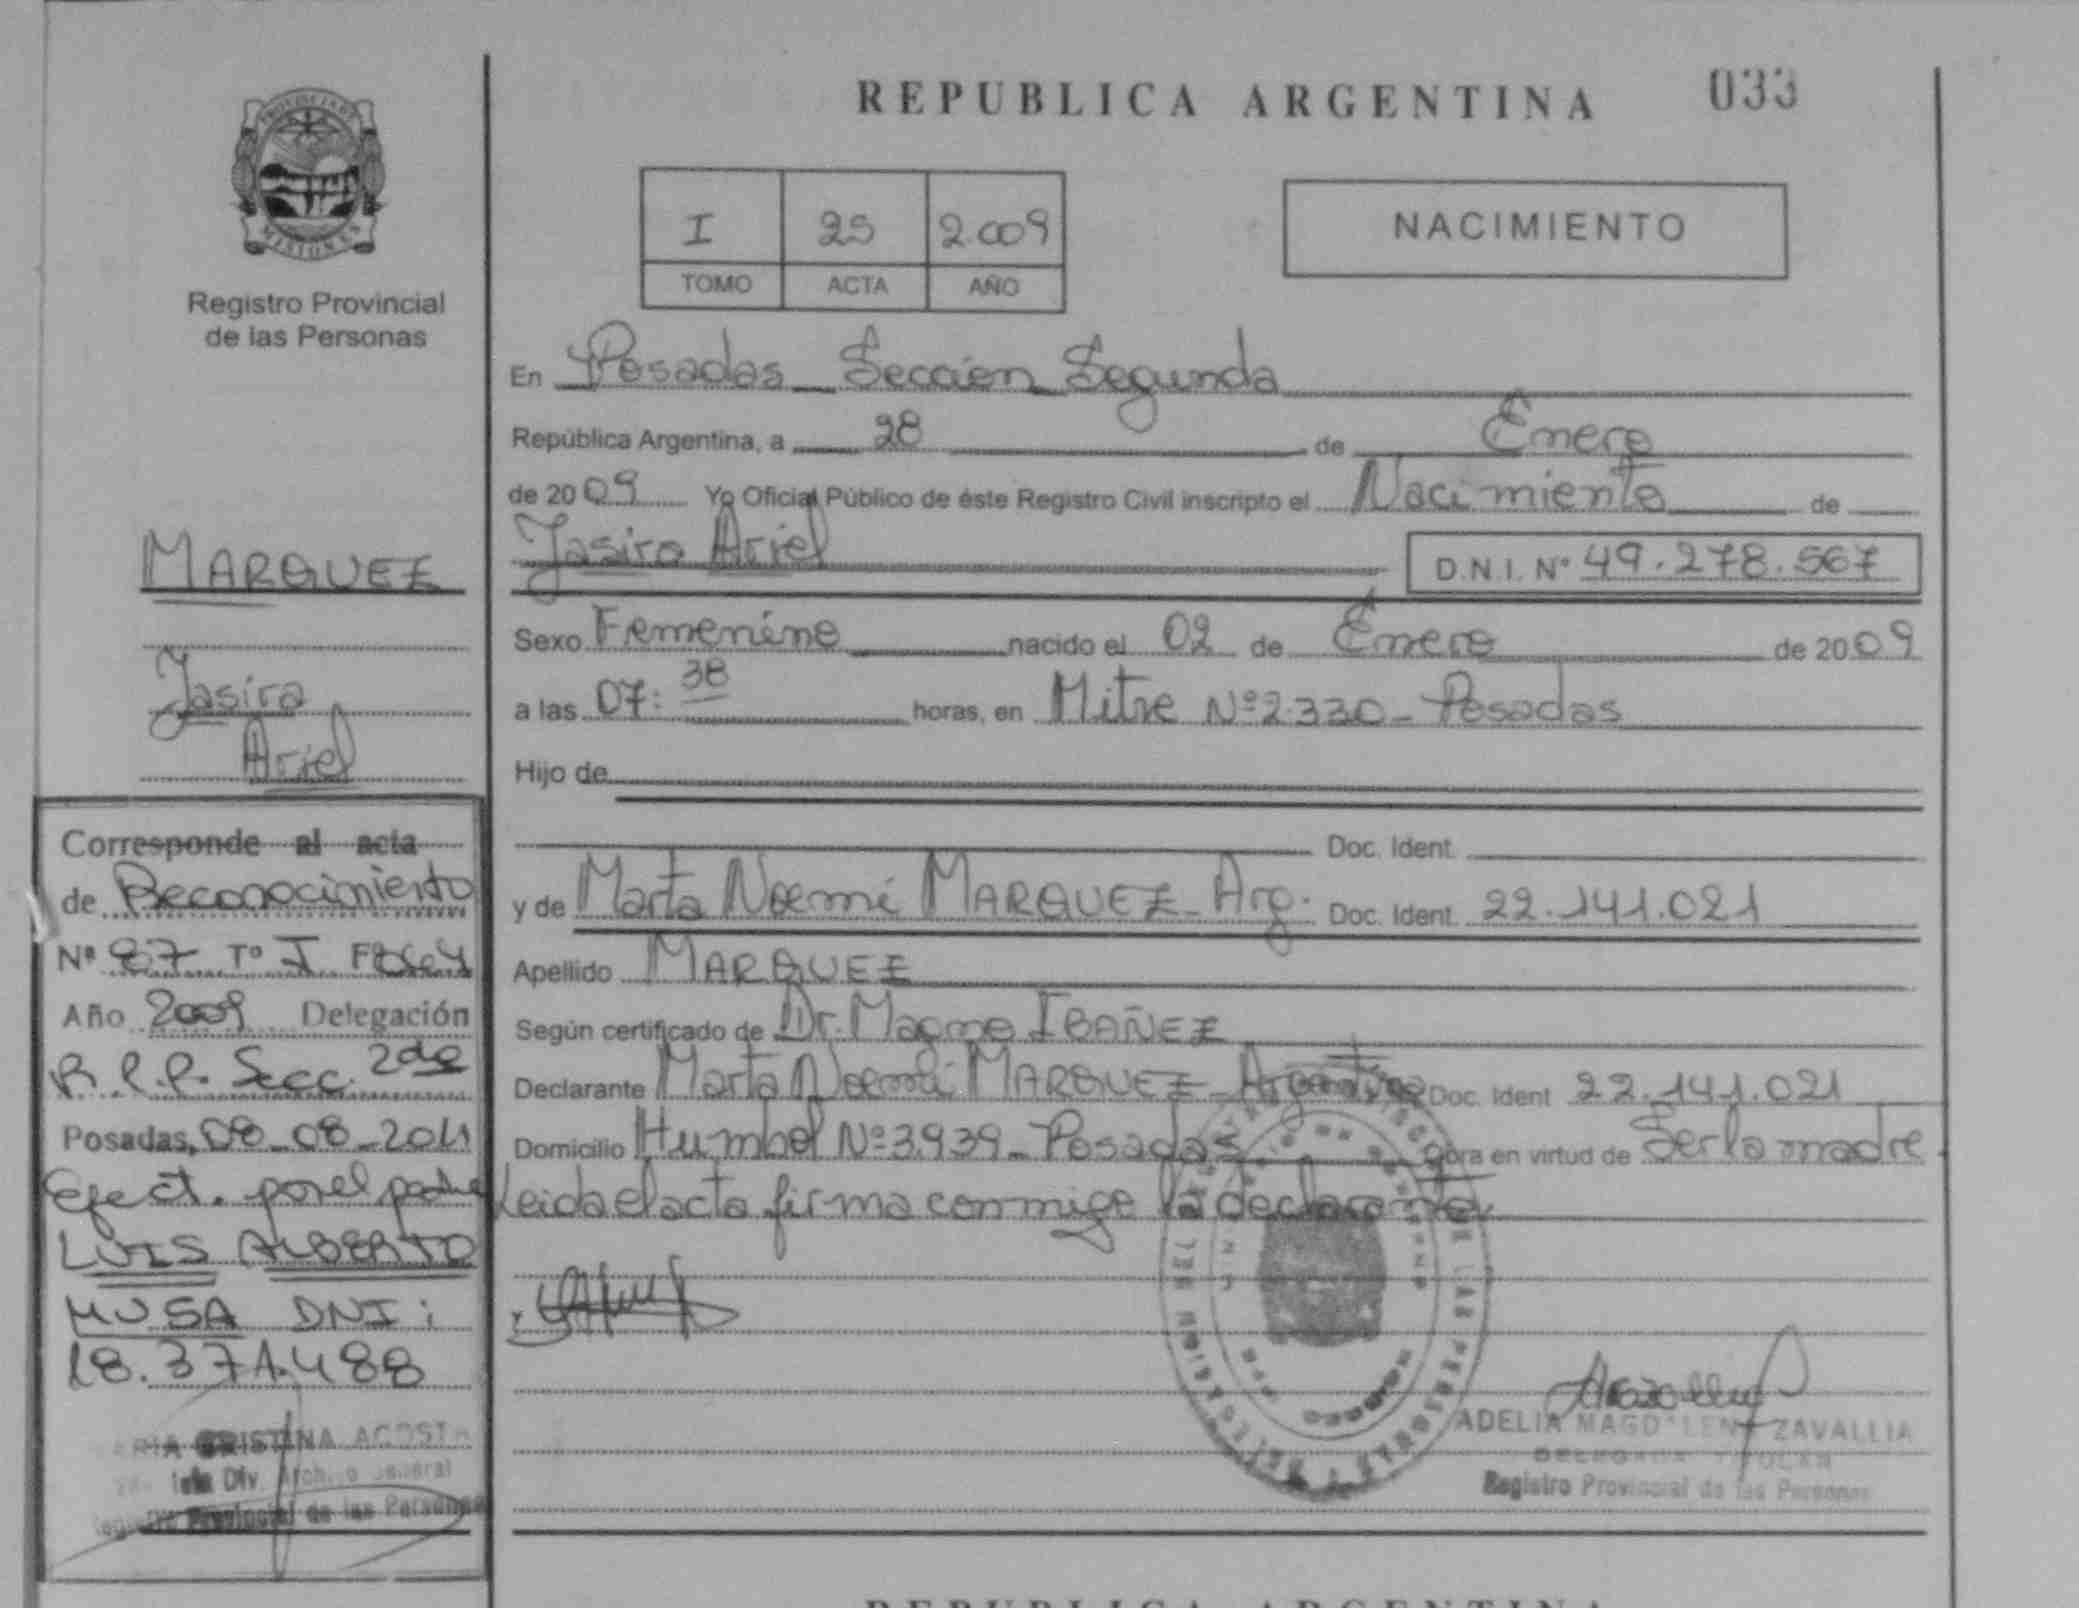 REPUBLICA ARGENTINA
033
PROVINCIA DE
MISIONES
Registro Provincial
de las Personas
I 25 2.009
TOMO ACTA AÑO
NACIMIENTO
En Posadas _ Sección Segunda
República Argentina, a 28 de Enero
de 2009 Yo Oficial Público de éste Registro Civil inscripto el Nacimiento de
Jasira Ariel D.N.I. N° 49.278.567
Sexo Femenino nacido el 02 de Enero de 2009
a las 07:38 horas, en Mitre Nº 2.330 - Posadas
Hijo de
Doc. Ident.
y de Marta Noemí MARQUEZ - Arg. Doc. Ident. 22.141.021
Apellido MARQUEZ
Según certificado de Dr. Magno IBAÑEZ
Declarante Marta Noemí MARQUEZ - Argentina Doc. Ident 22.141.021
Domicilio Humbol Nº 3.939 - Posadas Obra en virtud de Ser la madre.
Leida el acta firma conmigo la declarante.
ADELIA MAGDALENA ZAVALLIA
DELEGADA TITULAR
Registro Provincial de las Personas
MARQUEZ
Jasira
Ariel
Corresponde al acta
de Reconocimiento
Nº 87 Tº I
Año 2009 Delegación
R.P.P. Secc. 2da
Posadas, 08-08-2011
Efect. por el padre
LUIS ALBERTO
MUSA DNI:
18.371.488
MARIA CRISTINA ACOSTA
Div. Archivo General
Registro Provincial de las Personas
REPUBLICA ARGENTINA